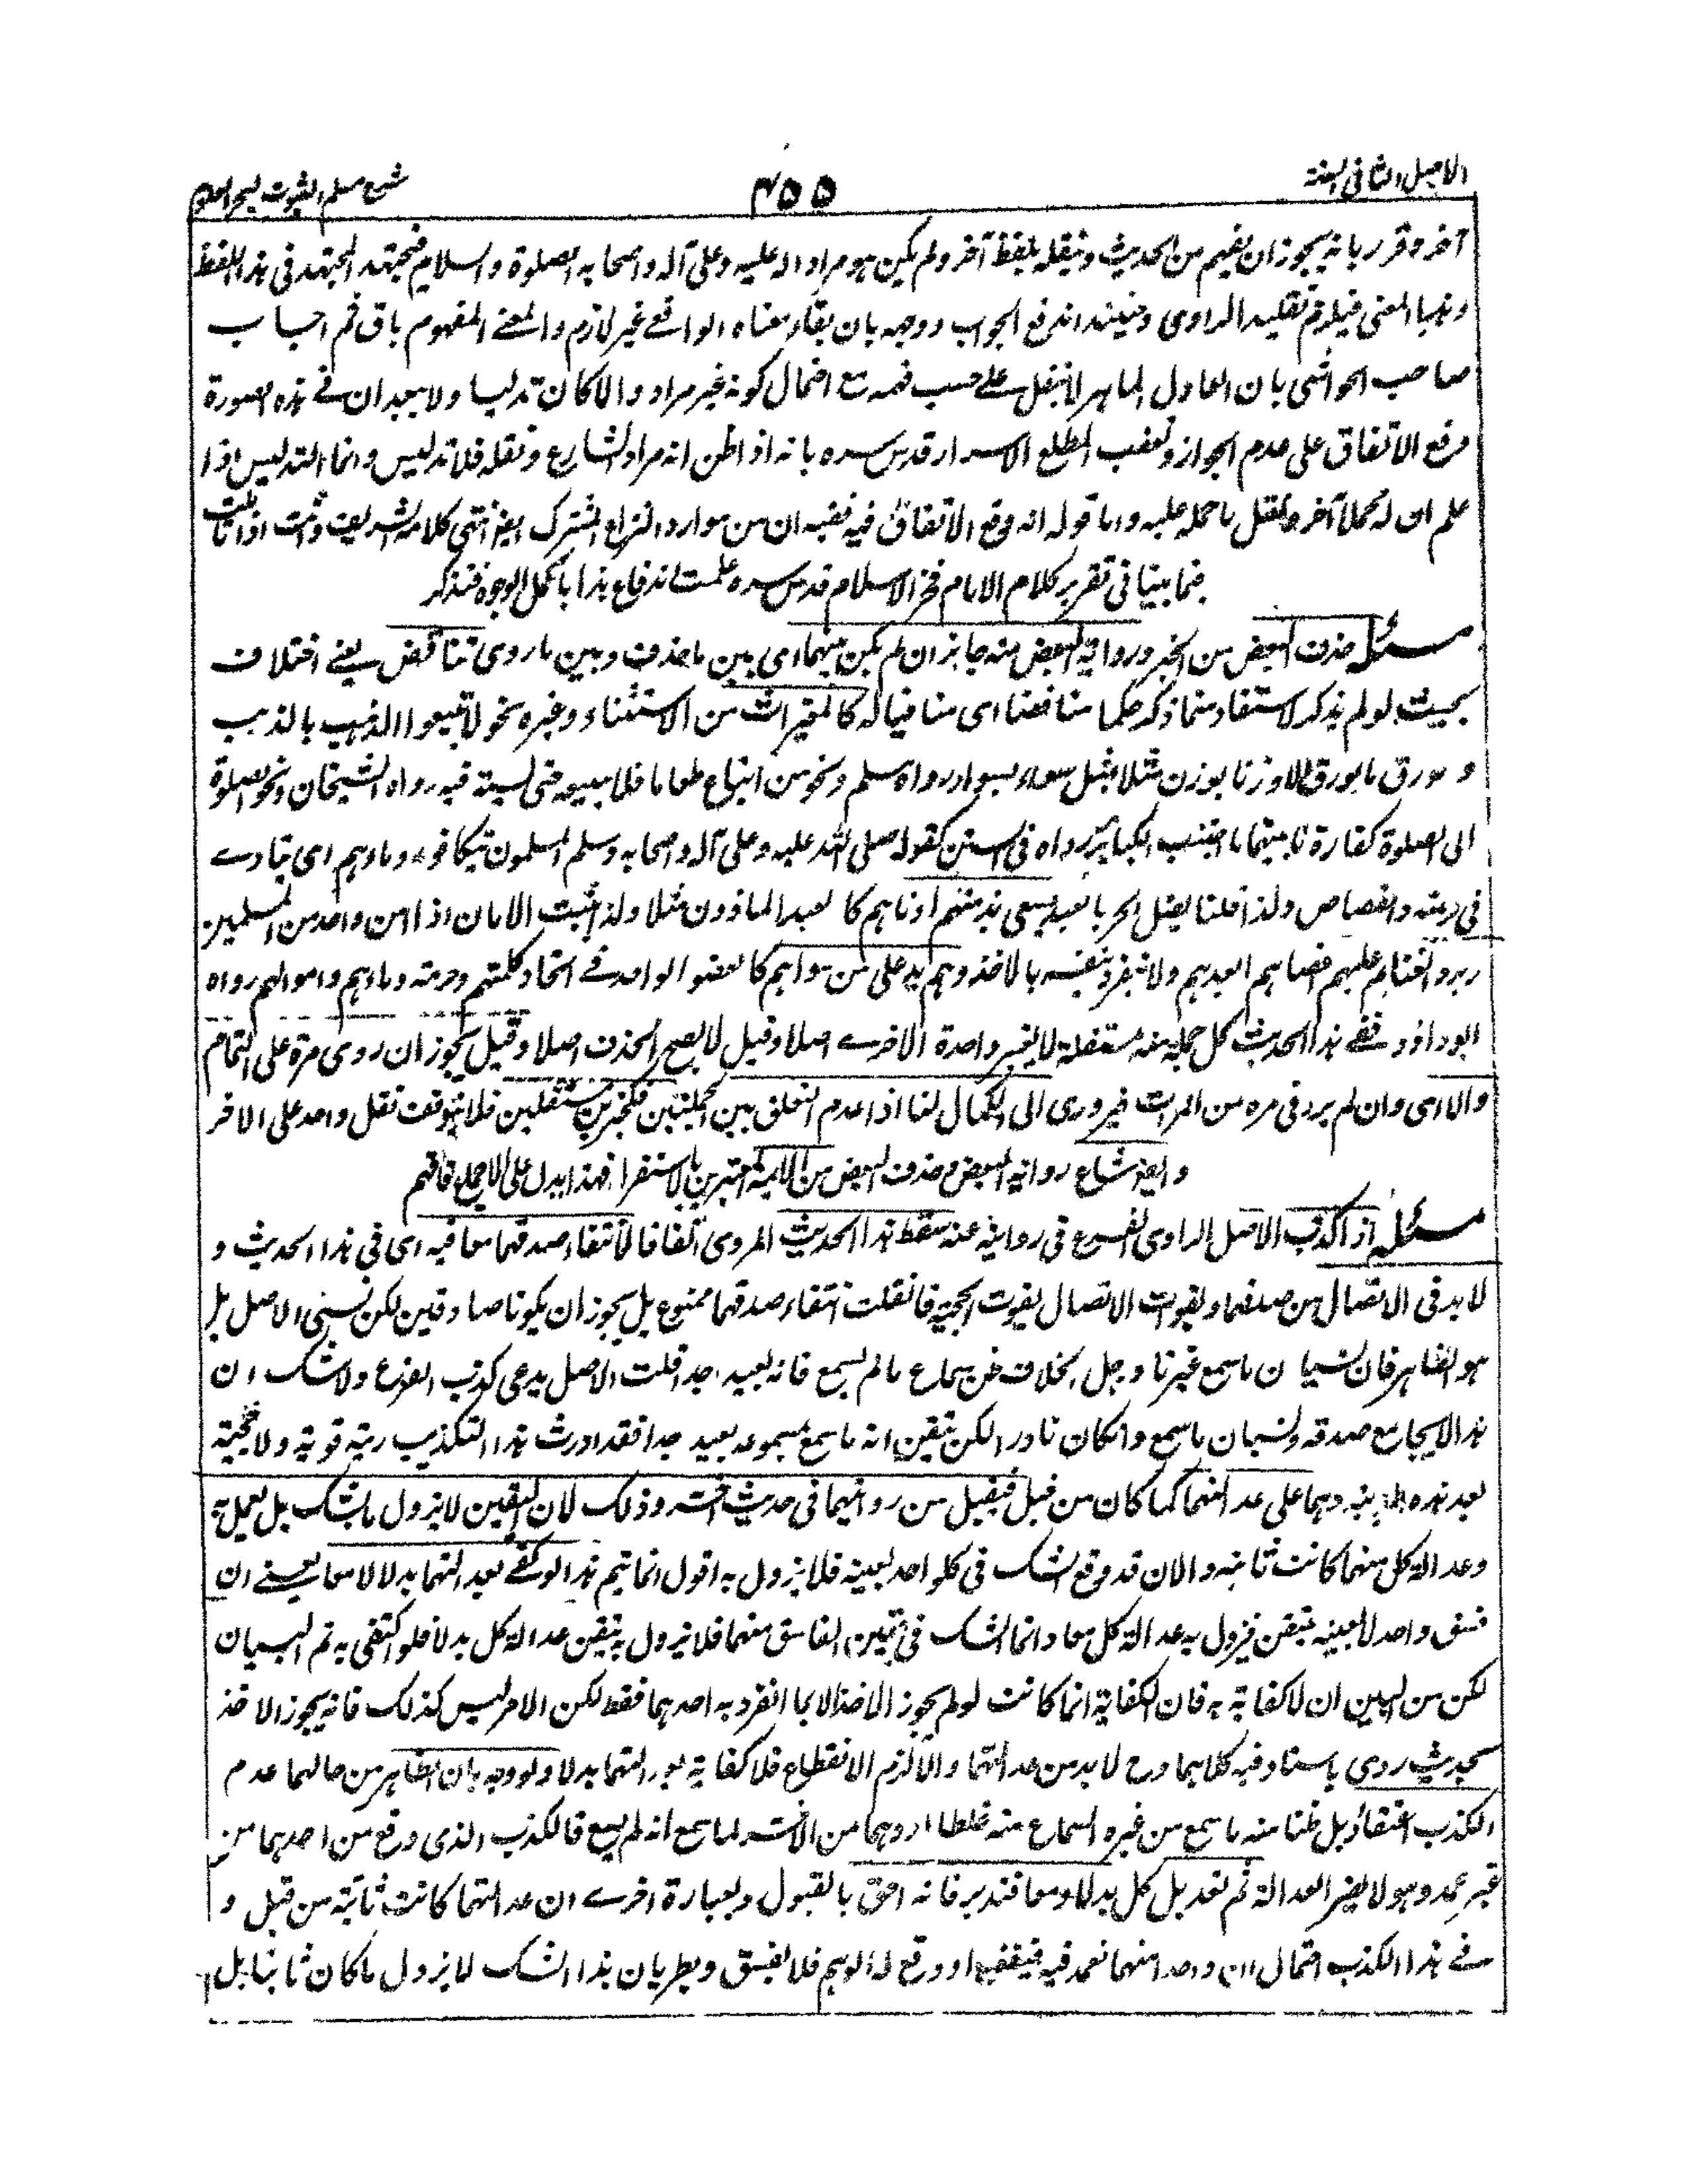 الاصل الثانی السنة
۴۵۵
شرح مسلم الثبوت لبحر العلوم
آخر وقرر بانه یجوز ان یفهم من الحدیث وینقله بلفظ آخر ولم یکن هو مراد اله علیه وعلی آله واصحابه الصلوة والسلام فیجتهد المجتهد فی هذا اللفظ
وهذا المعنی فیلزم تقلید الراوی وحینئذ اندفع الجواب ووجه بان بقاء معناه الواقعے غیر لازم والمعنے المفهوم باق ثم اجاب
صاحب الحواشی بان العادل الماهر لا ینقل علے حسب فهمه مع احتمال کونه غیر مراد والا کان تدلیسا ولا یبعد ان فے هذه الصورة
وقع الاتفاق علی عدم الجواز وتعقب المطلع الاسرار قدس سره بانه اذا ظن انه مراد الشارع ونقله فلا تدلیس وانما التدلیس اذا
علم ان له محملا آخر ولم ینقل ما حمله علیه واما قوله انه وقع الاتفاق فیه ففیه ان من موارد النزاع المشترک ایضا انتهی کلامه الشریف وانت اذا تاملت
فیما بینا فی تقریر کلام الامام فخر الاسلام قدس سره علمت اندفاع هذا باکمل الوجوه فتذکر
مسئلہ حذف البعض من الخبر وروایة البعض منه جایز ان لم یکن بینهما ای بین ما حذف وبین ما روی تناقض یعنے اختلاف
بحیث لو لم یذکر لاستفاد مما ذکر حکما مناقضا ای منافیا له کالمغیرات من الاستثناء وغیره نحو لا تبیعوا الذهب بالذهب
و لا ورق بالورق الا وزنا بوزن مثلا بمثل سواء بسواء رواه مسلم ونحو من ابتاع طعاما فلا یبیعه حتی یستوفیه رواه الشیخان ونحو الصلوة
الی الصلوة کفارة لما بینهما ما اجتنب الکبایر رواه فی السنن کقوله صلی الله علیه وعلی آله واصحابه وسلم المسلمون تتکافوء دماءهم ای تتساوے
فی الدیة والقصاص ولذا قلنا یقتل الحر بالعبد ویسعی بذمتهم ادناهم کا لعبد الماذون مثلا ولذا یثبت الامان اذا امن واحد من المسلمین
ویرد الغنایم علیهم اقصاهم ابعدهم ولا ینفرد بنفسه بالاخذ وهم ید علی من سواهم کا لعضو الواحد فے اتحاد کلمتهم وحرمة دماءهم واموالهم رواه
ابو داؤد ففے هذا الحدیث کل جملة منه مستقلة لا یغیر واحدة الاخرے اصلا وقیل لا یصح الحذف اصلا وقیل یجوز ان روی مرة علی التمام
والا ای وان لم یرد فی مرة من المرات غیر وری الی الکمال لنا اذا عدم التعلق بین الجملتین فکخبرین مستقلین فلا یتوقف نقل واحد علی الاخر
وایضا شاع روایة البعض وحذف البعض من الایمة المعتبرین بالاستقراء فهذا یدل علی الاجماع فافهم
مسئلہ اذا کذب الاصل الراوی الفرع فی روایة عنه سقط هذا الحدیث المروی اتفاقا لانتفاء صدقهما معا فیه ای فی هذا الحدیث و
لا بد فی الاتصال من صدقهما وبفوات الاتصال یفوت الحجیة فان قلت انتفاء صدقهما ممنوع بل یجوز ان یکونا صادقین لکن نسی الاصل بل
هو الظاهر فان نسیا ن ما سمع غیر نا در جل بخلاف ظن سماع ما لم یسمع فانه بعید جدا قلت الاصل یدعی کذب الفرع ولا شک ان
هذا لا یجامع صدقه ونسیان ما سمع وان کان نادرا لکن تیقن انه ما سمع لمسموعه بعید جدا فقد اورث هذا التکذیب ریبة قویة ولا حجیة
بعد هذه الریبة وهما علی عدالتهما کما کان من قبل فیقبل من روایتهما فی حدیث آخر وذلک لان الیقین لا یزول بالشک بل یعمل به
وعدالة کل منهما کانت ثابتة والان قد وقع الشک فی کل واحد بعینه فلا یزول به اقول انما یتم هذا لو کفے بعدالتهما بدلا لا معا یعنے ان
فسق واحد لا بعینه متیقن فیزول به عدالة کل معا وانما الشک فی تعیین الفاسق منهما فلا یزول به تیقن عدالة کل بدلا فلو اکتفی به تم البیان
لکن من البین ان لا کفایة به فان الکفایة انما کانت لو لم یجوز الاخذ الا بما انفرد به احدهما فقط لکن الامر لیس کذلک فانه یجوز الاخذ
بحدیث روی باسناد فیه کلاهما وح لا بد من عدالتهما والا لزم الانقطاع فلا کفایة بعدالتهما بدلا ولو وجه بان الظاهر من حالهما عدم
الکذب اعتقادا بل ظنا منه ما سمع من غیره السماع منه غلطا او وهما من الآخر لما سمع انه لم یسمع فالکذب الذی وقع من احدهما من
غیر عمد وهو لا یضر العدالة ثم تعدیل کل بدلا ومعا فتدبر فانه احق بالقبول وبعبارة اخرے ان عدالتهما کانت ثابتة من قبل و
فے هذا الکذب احتمال ان واحدا منهما تعمد فیه فیفسق او وقع له الوهم فلا یفسق وبطریان هذا الشک لا یزول ما کان ثابتا بل